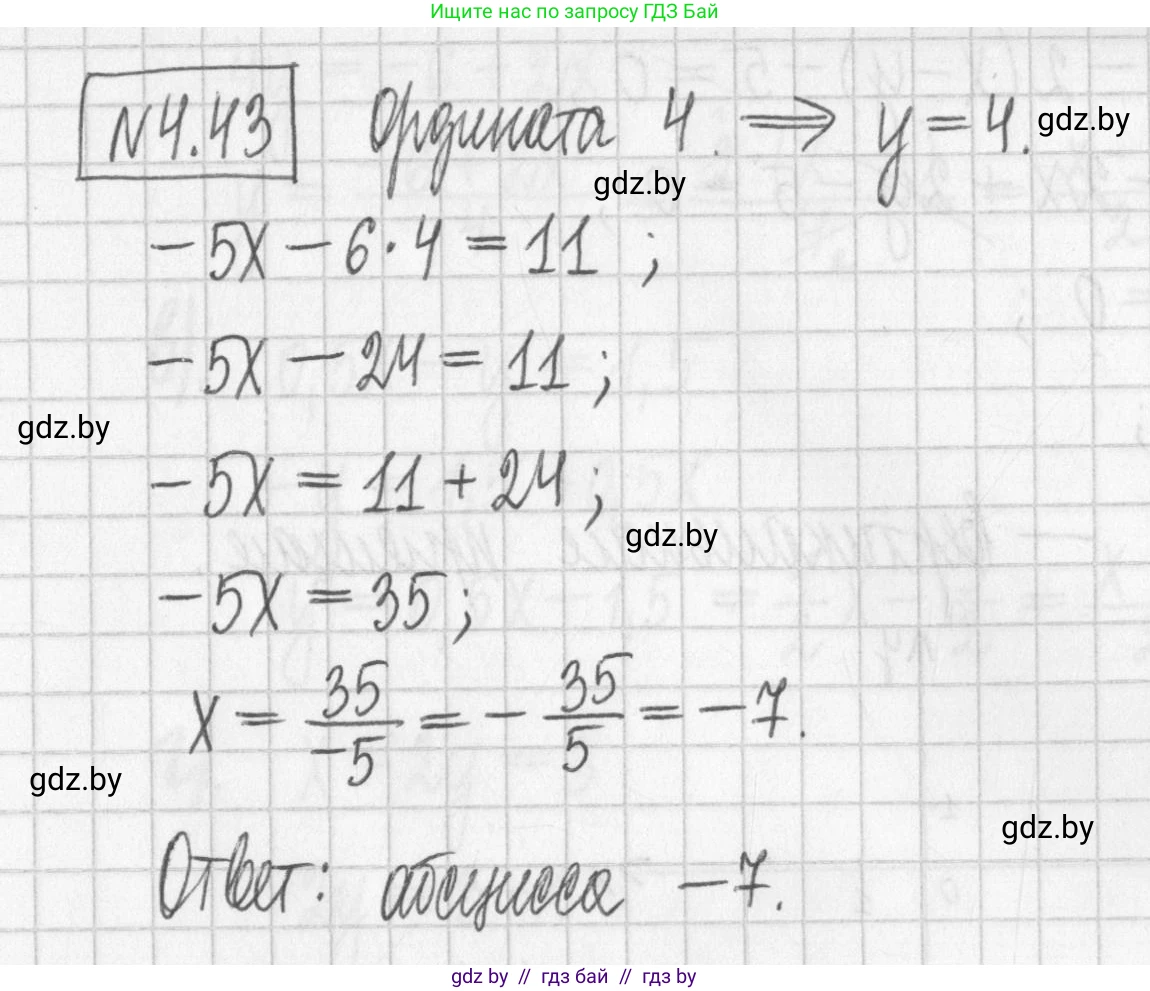 Ищите нас по запросу ГДЗ Бай
N4.43 Ордината 4. ⟹ y = 4. gdz.by
gdz.by
-5x - 6·4 = 11 ;
-5x - 24 = 11 ;
gdz.by
-5x = 11 + 24 ;
gdz.by
-5x = 35 ;
x = 35/-5 = - 35/5 = -7.
gdz.by
gdz.by
Ответ: абсцисса -7.
gdz.by // гдз бай // гдз by